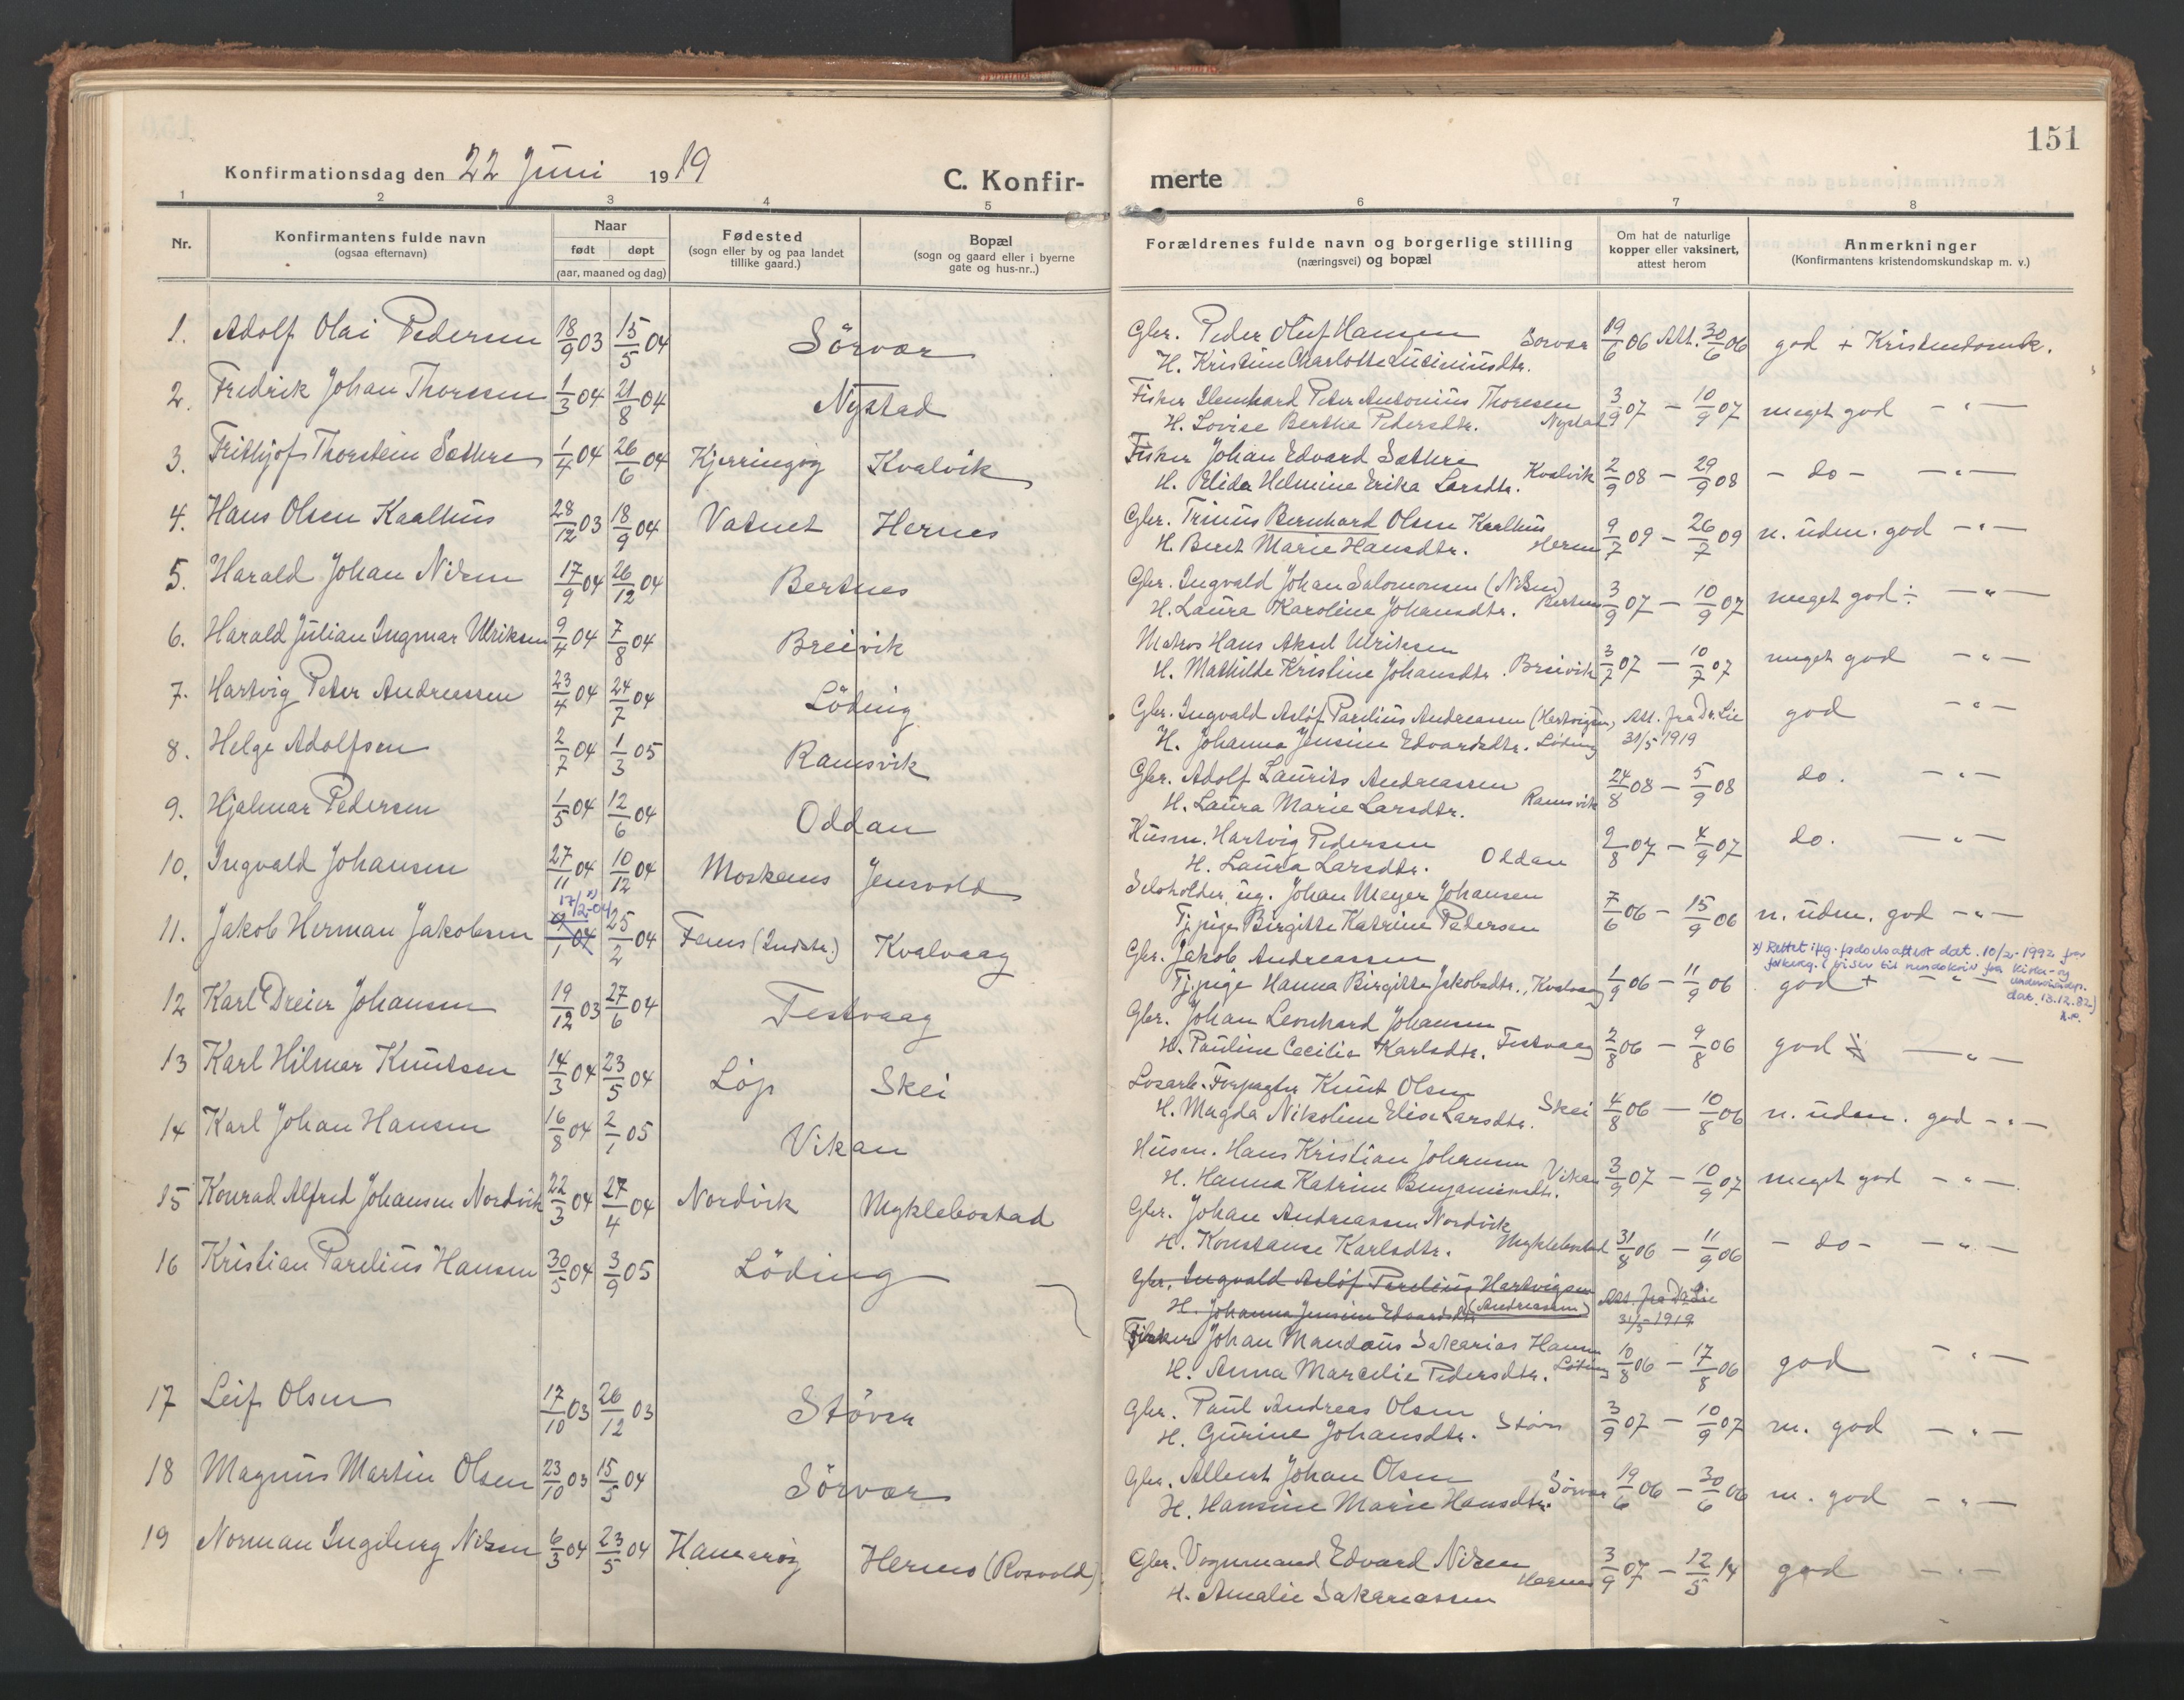 151
Konfirmationsdag den 22 Juni 1919
C. Konfir-
merte
1 2 3 4 5 6 7 8
Nr.
Konfirmantens fulde navn
(ogsaa efternavn)
Naar
født døpt
(aar, maaned og dag)
Fødested
(sogn eller by og paa landet
tillike gaard.)
Bopæl
(sogn og gaard eller i byerne
gate og hus-nr..)
Forældrenes fulde navn og borgerlige stilling
(næringsvei) og bopæl
Om hat de naturlige
kopper eller vaksinert,
attest herom
Anmerkninger
(Konfirmantens kristendomskundskap m. v.)
1. Adolf Olai Pedersen 18/9 03 15/5 04 Sörvær
Gbr. Peder Oluf Hansen Sørvær 19/6 06 Att. 30/6 06 god + Kristendomsk.
H. Kristine Charlotte Luciniusdtr.
2. Fredrik Johan Thoresen 1/3 04 21/8 04 Nystad
Fisker Hemhard Peter Antonius Thoresen 3/9 07 — 10/9 07 meget god — " —
H. Lovise Berthe Pedersdtr. Nystad
3. Frithjof Thorstein Sæthre 1/4 04 26/6 04 Kjerringøy Kvalvik
Fisker Johan Edvard Sæthre
H. Elida Helmine Erika Larsdtr. Kvalvik 2/9 08 — 29/9 08 - do - — " —
4. Hans Olsen Kaalhus 28/12 03 18/9 04 Vatnet Hernes
Gbr. Trinus Bernhard Olsen Kaalhus
H. Beret Marie Hansdtr. Hernes 9/7 09 — 26/7 09 n. uden. god — " —
5. Harald Johan Nilsen 17/9 04 26/12 04 Bertnes
Gbr. Ingvald Johan Salomonsen (Nilsen)
H. Laura Karoline Johansdtr. Bertnes 3/9 07 — 10/9 07 meget god ÷ — " —
6. Harald Julian Ingmar Ulriksen 9/4 04 7/8 04 Breivik
Matros Hans Aksel Ulriksen
H. Mathilde Kristine Johansdtr. Breivik 3/7 07 — 10/7 07 meget god — " —
7. Hartvig Peter Andreassen 23/4 04 24/7 04 Löding
Gbr. Ingvald Asløf Parelius Andreassen (Hartvigsen) Att. fra Dr. Lie god — " —
H. Johanna Jensine Edvardsdtr. Løding 31/5 1919
8. Helge Adolfsen 2/7 04 1/3 05 Ramsvik
Gbr. Adolf Laurits Andreassen
H. Laura Marie Larsdtr. Ramsvik 24/8 08 — 5/9 08 do. — " —
9. Hjalmar Pedersen 1/5 04 12/6 04 Oddan
Husm. Hartvig Pedersen
H. Laura Larsdtr. Oddan 2/8 07 — 4/9 07 do. — " —
10. Ingvald Johansen 27/11 04 10/12 04 Moskenes Jensvold
Selvholder, ug. Johan Meyer Johansen
Tj.pige Birgitte Katrine Pedersen 7/6 06 — 15/9 06 n. uden. god — " —
17/2-04 x)
11. Jakob Herman Jakobsen 25/2 04 Fenes (Indstr.) Kvalvaag
Gbr. Jakob Andreassen
Tj.pige Hanna Birgitte Jakobsdtr., Kvalvaag 1/9 06 — 11/9 06 god + — " —
x) Rettet iflg. fødselsattest dat. 10/2-1992 fra
folkereg. (viser til rundskriv fra Kirke- og
undervisn.dep.
dat. 13.12.82)
12 Karl Dreier Johansen 19/12 03 27/6 04 Festvaag
Gbr. Johan Leonhard Johansen
H. Pauline Cecilie Karlsdtr. Festvaag 2/8 06 — 9/8 06 god — " —
13 Karl Hilmar Knutsen 14/3 04 23/5 04 Løp Skei
Losarb. Forpagter Knut Olsen
H. Magda Nikoline Elise Larsdtr. Skei 4/8 06 — 10/8 06 n. uden. god — " —
14 Karl Johan Hansen 16/8 04 2/1 05 Vikan
Husm. Hans Kristian Johansen
H. Hanna Katrine Benjaminsdtr. Vikan 3/9 07 — 10/9 07 meget god — " —
15 Konrad Alfred Johansen Nordvik 22/3 04 27/4 04 Nordvik Myklebostad
Gbr. Johan Andreassen Nordvik
H. Konstanse Karlsdtr. Myklebostad 31/8 06 — 11/9 06 - do - — " —
16 Kristian Parelius Hansen 30/5 04 3/9 05 Löding
Gbr. Ingvald Asløf Parelius Hartvigsen Att. fra Dr. Lie
H. Johanna Jensine Edvardsdtr. (Andreassen) 31/5-1919
Fisker Johan Mandøus Sakarias Hansen
H. Anna Marcelie Pedersdtr. Løding 10/8 06 — 17/8 06 god — " —
17 Leif Olsen 17/10 03 26/12 03 Støver
Gbr. Paul Andreas Olsen
H. Gurine Johansdtr. Støver 3/9 07 — 10/9 07 m. god — " —
18 Magnus Martin Olsen 23/10 03 15/5 04 Sörvær
Gbr. Albert Johan Olsen
H. Hansine Marie Hansdtr. Sørvær 19/6 06 — 30/6 06 m. god — " —
19 Norman Ingeberg Nilsen 6/3 04 23/5 04 Hamarøy Hernes (Rosvold)
Gbr. Vognmand Edvard Nilsen
H. Amalie Sakariassen Hernes 3/9 07 — 12/5 14 god — " —